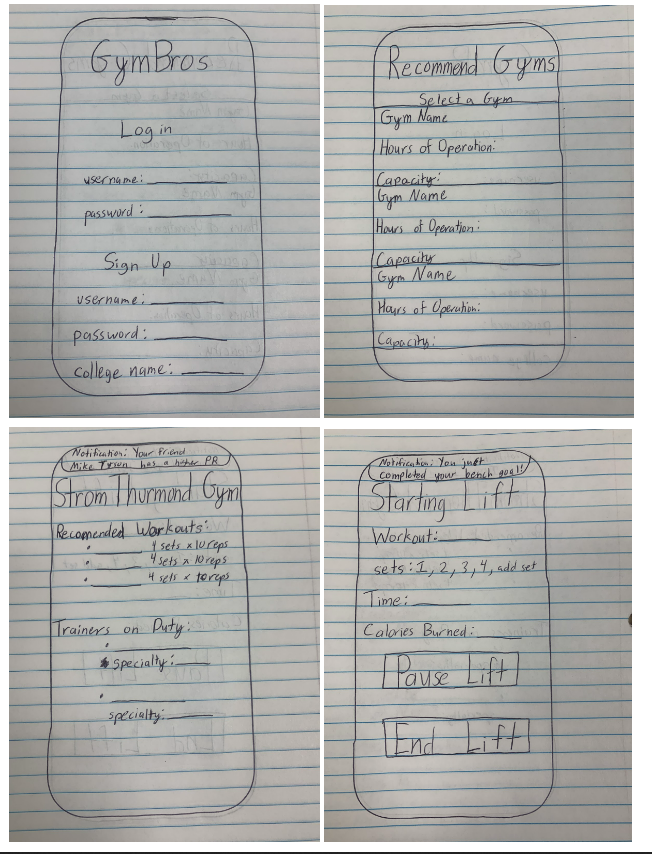 GymBros
Log in
username:
password:
Sign Up
username:
password:
college name:
Recommend Gyms
Select a Gym
Gym Name
Hours of Operation:
Capacity:
Gym Name
Hours of Operation:
Capacity
Gym Name
Hours of Operation:
Capacity:
Notification: Your friend
Mike Tyson has a higher PR
Strom Thurmond Gym
Recomended Workouts:
4 sets x 10 reps
4 sets x 10 reps
4 sets x 10 reps
Trainers on Duty:
specialty:
specialty:
Notification: You just
completed your bench goal!
Starting Lift
Workout:
sets: 1, 2, 3, 4, add set
Time:
Calories Burned:
Pause Lift
End Lift